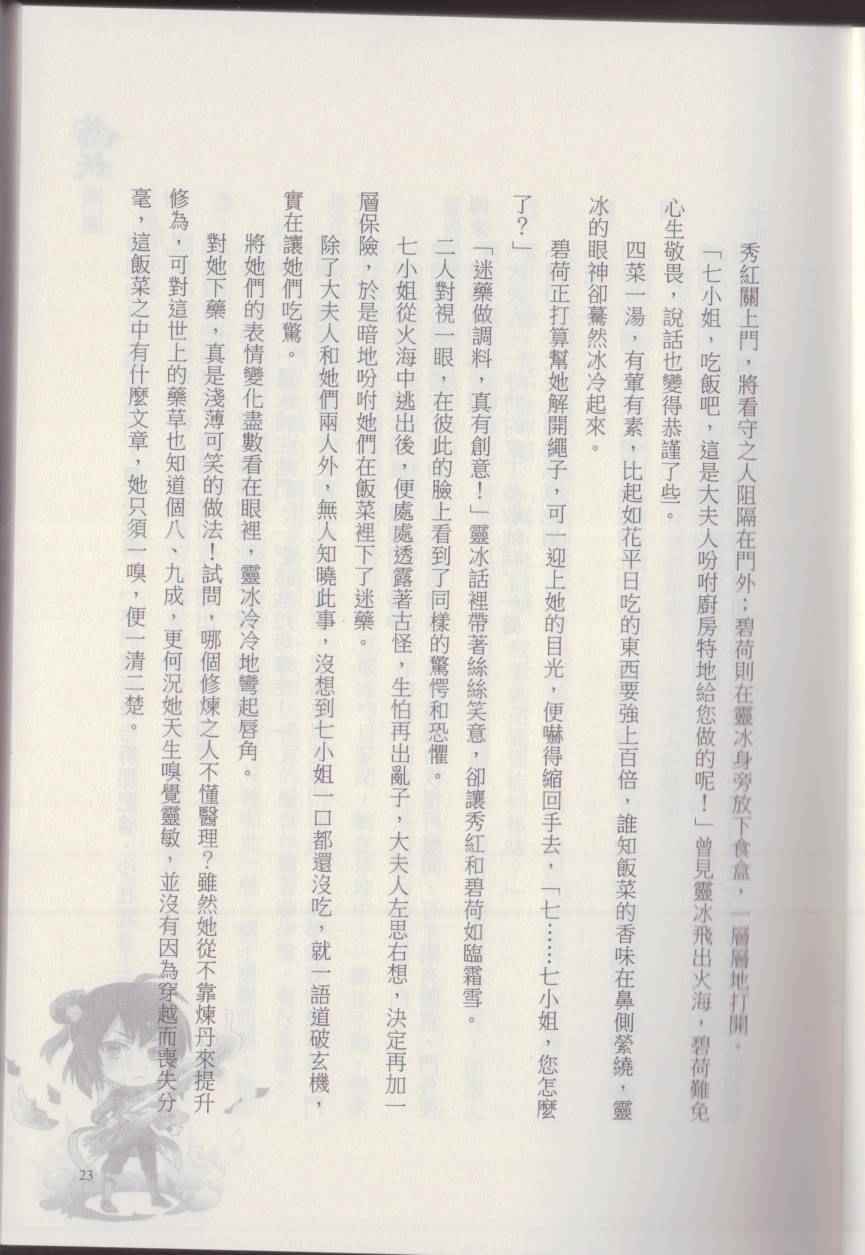 秀紅關上門，將看守之人阻隔在門外；碧荷則在靈冰身旁放下食盒，一層層地打開。
「七小姐，吃飯吧，這是大夫人吩咐廚房特地給您做的呢！」曾見靈冰飛出火海，碧荷難免
心生敬畏，說話也變得恭謹了些。
四菜一湯，有葷有素，比起如花平日吃的東西要強上百倍，誰知飯菜的香味在鼻側縈繞，靈
冰的眼神卻驀然冰冷起來。
碧荷正打算幫她解開繩子，可一迎上她的目光，便嚇得縮回手去，「七……七小姐，您怎麼
了？」
「迷藥做調料，真有創意！」靈冰話裡帶著絲絲笑意，卻讓秀紅和碧荷如臨霜雪。
二人對視一眼，在彼此的臉上看到了同樣的驚愕和恐懼。
七小姐從火海中逃出後，便處處透露著古怪，生怕再出亂子，大夫人左思右想，決定再加一
層保險，於是暗地吩咐她們在飯菜裡下了迷藥。
除了大夫人和她們兩人外，無人知曉此事，沒想到七小姐一口都還沒吃，就一語道破玄機，
實在讓她們吃驚。
將她們的表情變化盡數看在眼裡，靈冰冷冷地彎起唇角。
對她下藥，真是淺薄可笑的做法！試問，哪個修煉之人不懂醫理？雖然她從不靠煉丹來提升
修為，可對這世上的藥草也知道個八、九成，更何況她天生嗅覺靈敏，並沒有因為穿越而喪失分
毫，這飯菜之中有什麼文章，她只須一嗅，便一清二楚。
23